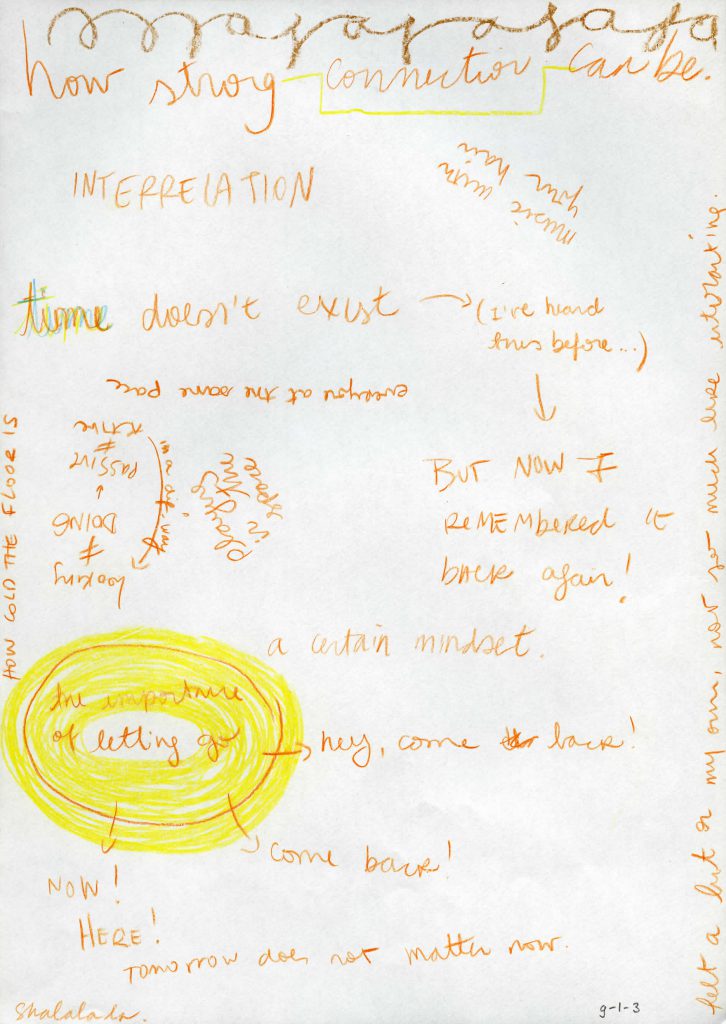 how strog connection can be.
music with
your hair
INTERRELATION
time doesn't exist → (I've heard
this before...)
everyone at the same pace
BUT NOW I
REMEMBERED IT
BACK again!
looking
≠
DOING
↓
PASSIVE
≠
ACTIVE
in a dif. way
playing
in the
space
HOW COLD THE FLOOR IS
a certain mindset.
the importance
of letting go → hey, come back!
come back!
NOW!
HERE!
TOMORROW does not matter now.
felt a bit on my own, not so much like interacting.
Shalalala.
9-1-3